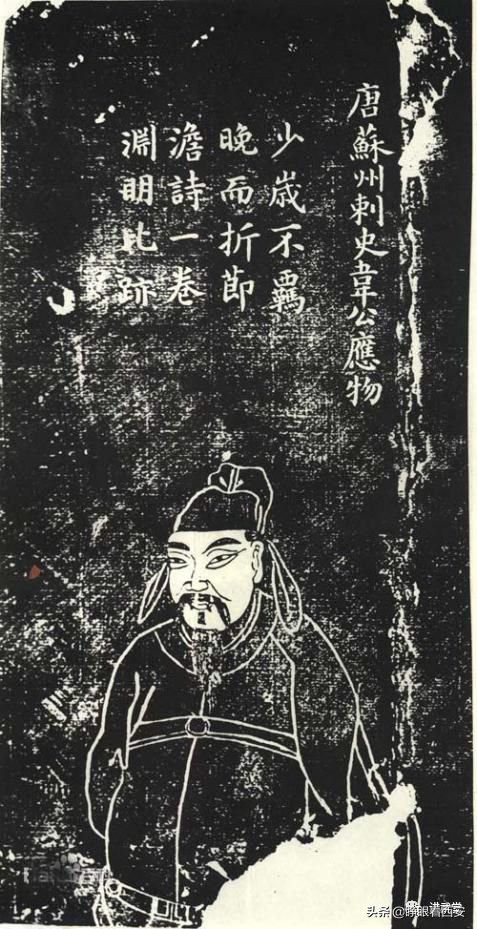 唐蘇州刺史韋公應物
少歲不羈
晚而折節
澹詩一卷
淵明比跡
头条